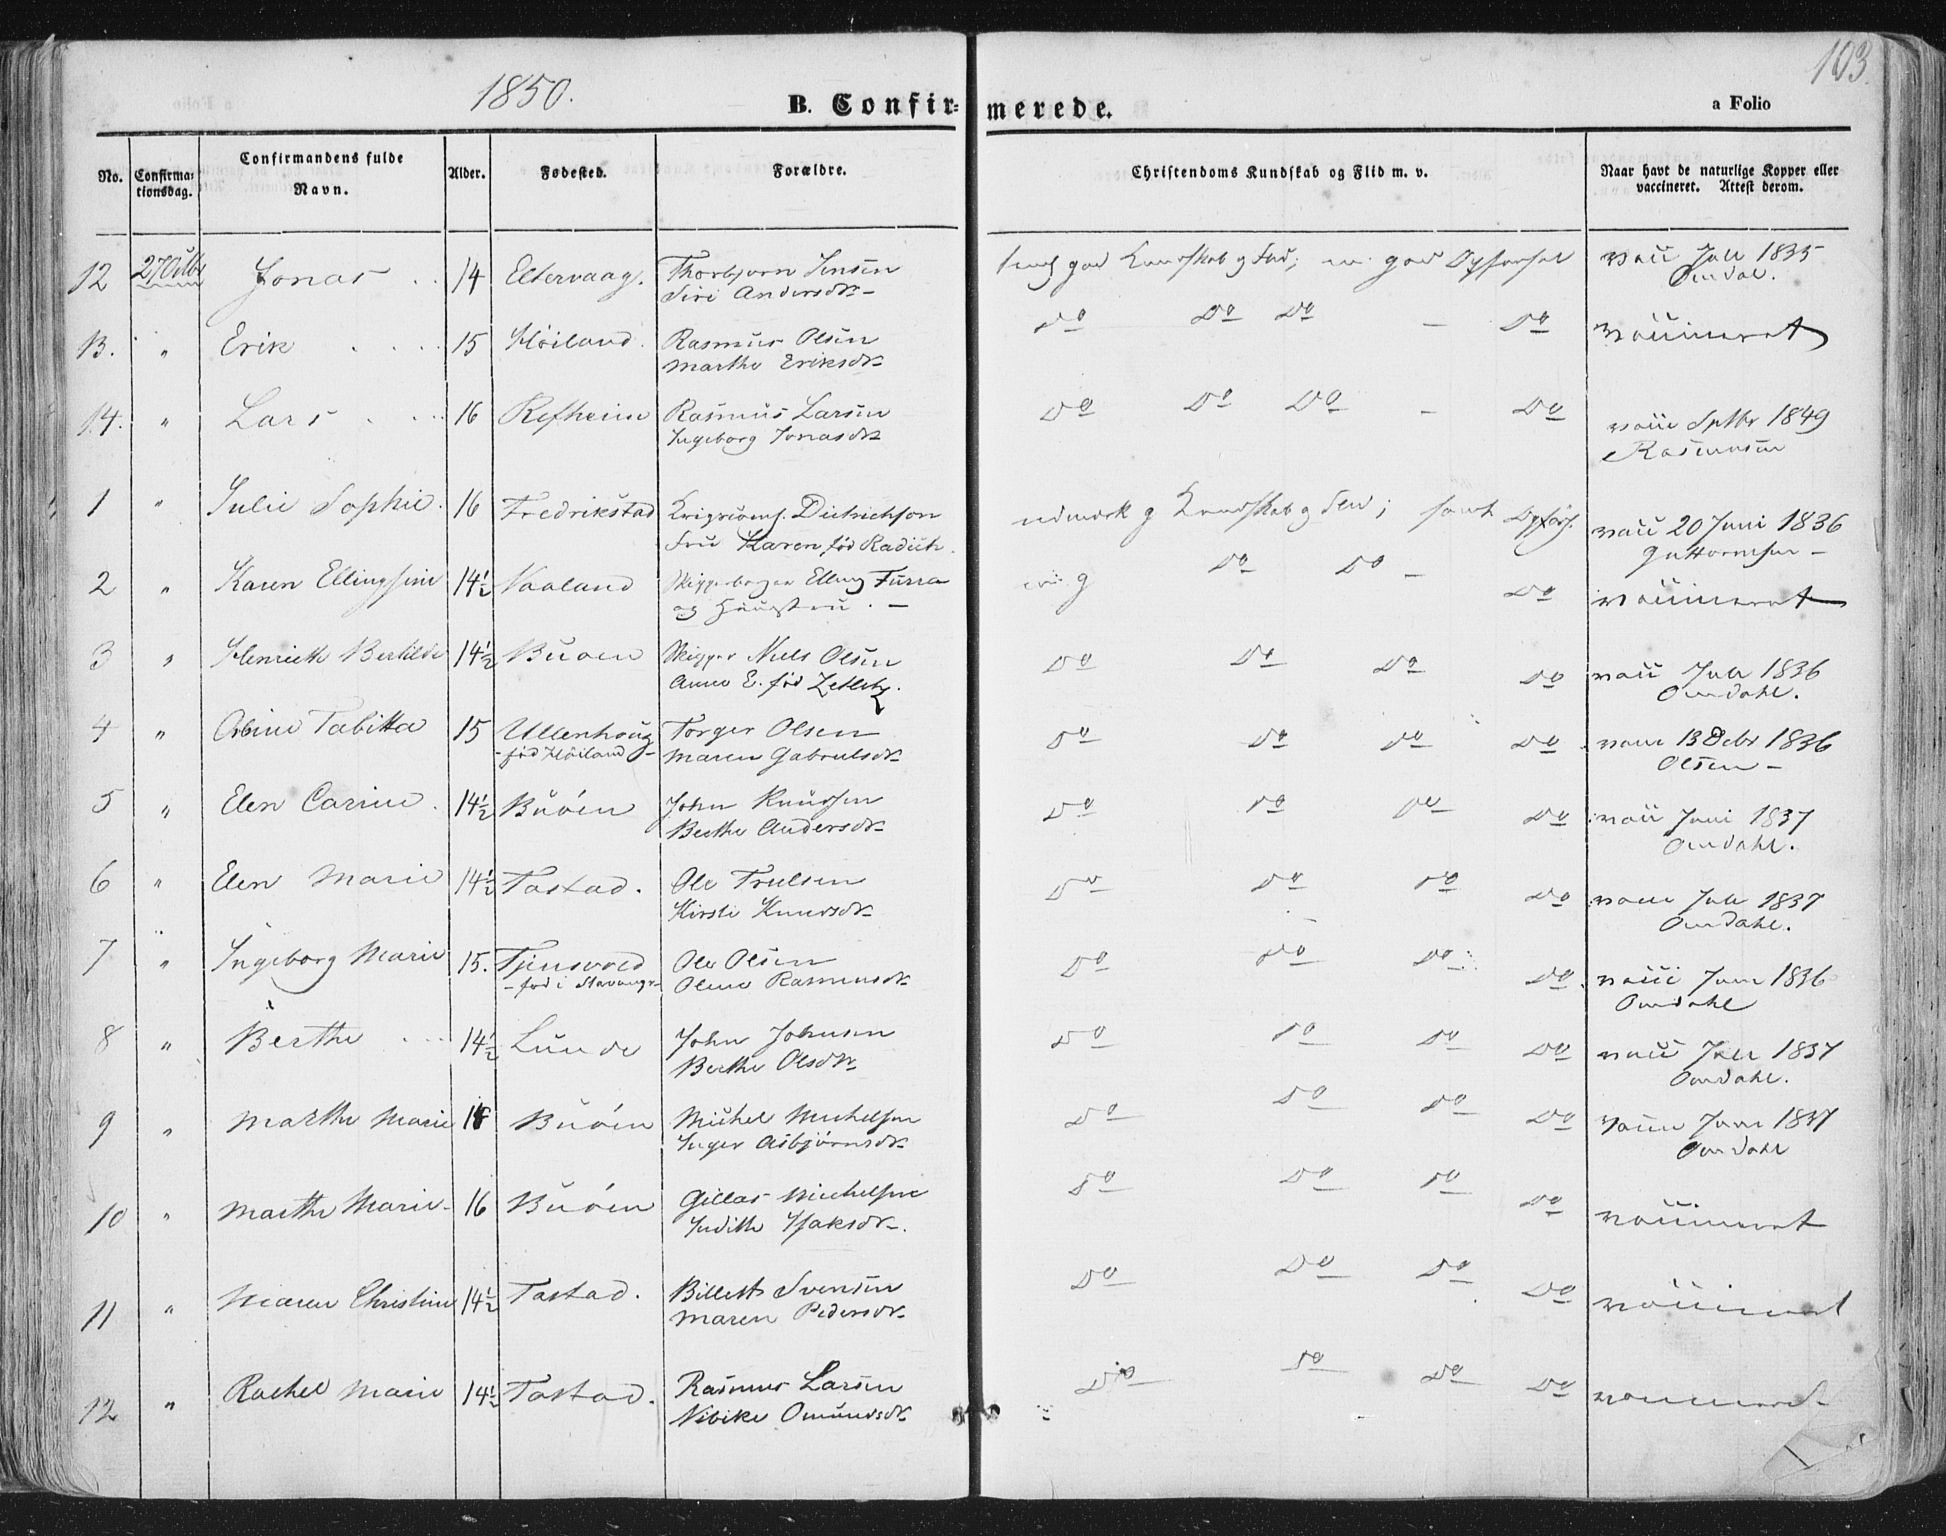 1850.
103.
B. Confirmerede.
a Folio
No. Confirmationsdag. Confirmandens fulde Navn. Alder. Fødested. Forældre. Christendoms Kundskab og Flid m. v. Naar havt de naturlige Kopper eller vaccineret. Attest derom.
12 27 Octbr Jonas 14 Eltervaag. Thorbjørn Jensen god Kundskab og Flid; god Opførsel vacc Juli 1835
Siri Andersdr Omdal.
13. " Erik 15 Høiland. Rasmus Olsen Do Do Do – Do vaccineret
Marthe Eriksdr
14. " Lars 16 Refheim Rasmus Larsen Do Do Do – Do vacc Septbr 1849
Ingeborg Jonasdr Rasmussen
1 " Julie Sophie. 16 Fredrikstad Dietrichson Kundskab og Flid; samt Opførs. vacc 20 Juni 1836
Fru Karen, fød Radich. Guttormsen –
2 " Karen Ellingsine 14½ Vaaland Elling Furra g Do Do – Do vaccineret
og Hustru. –
3 " Henriette Bertilde 14½ Buøen Skipper Niels Olsen Do Do Do Do vacc Juli 1836
Anne E. fød Zetlitz. Omdahl.
4 " Tabitta 15 Ullenhoug Torger Olsen Do Do Do Do vacc 13 Octbr 1836
- fød Høiland - Maren Gabrielsdr Olsen –
5 " Elen Carine. 14½ Buøen John Knudsen Do Do Do Do vacc Juni 1837
Berthe Andersdr Omdahl.
6 " Elen Marie 14½ Tastad. Ole Trulsen Do Do Do Do vacc Juli 1837
Kirsti Knudsdr Omdahl.
7 " Ingeborg Marie 15. Tjensvold Ole Olsen Do Do Do Do vacc Juni 1836
- fød i Stavanger - Oline Rasmusdr Omdahl
8 " Berthe 14½ Lunde John Johnsen Do Do Do Do vacc Juli 1837
Berthe Olsdr Omdahl.
9 " Marthe Marie Buøen Michel Michelsen Do Do Do Do vacc Juni 1837
Inger Asbjørnsdr Omdahl
10 " Marthe Marie 16 Buøen Gillas Michelsen Do Do Do Do vaccineret
Judith Isaksdr.
11 " Maren Christine 14½ Tastad. Billett Svensen Do Do Do Do vaccineret
Maren Pedersdr
12 " Rachel Marie 14½ Tastad. Rasmus Larsen Do Do Do Do vaccineret
Vibike Omundsdr